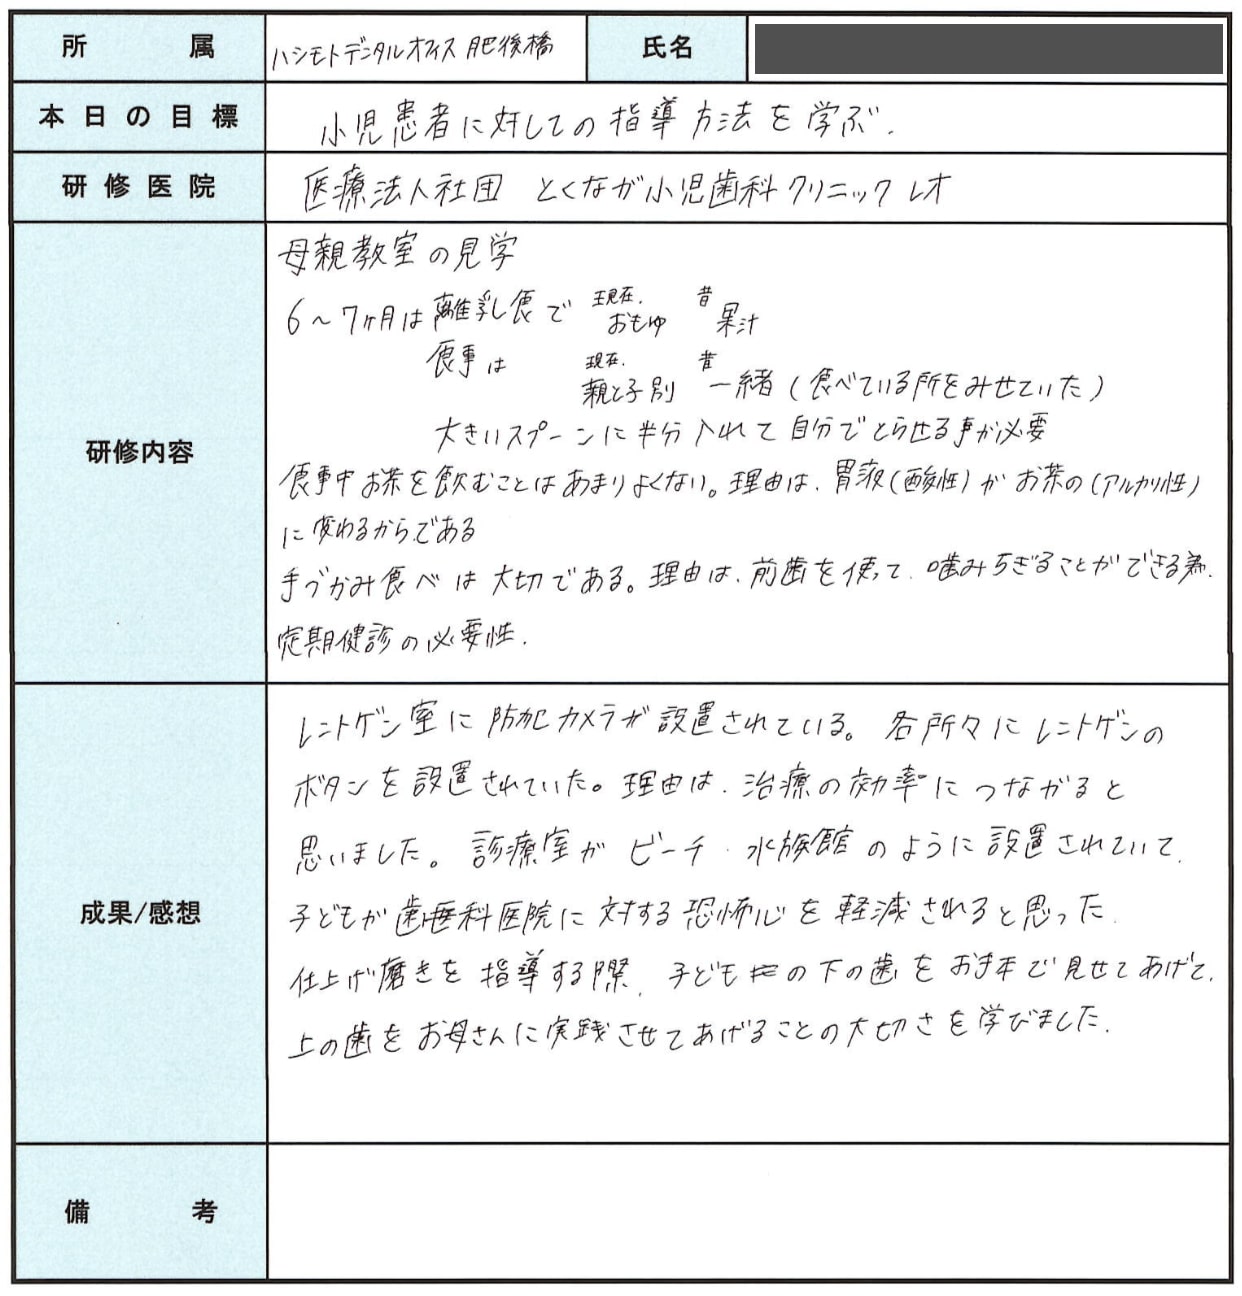 所属 ハシモトデンタルオフィス 肥後橋 氏名
本日の目標 小児患者に対しての指導方法を学ぶ.
研修医院 医療法人社団 とくなが小児歯科クリニックレオ
研修内容
母親教室の見学
6～7ヶ月は離乳食で 現在. おもゆ 昔 果汁
食事は 現在. 親と子別 昔 一緒 (食べている所をみせていた)
大きいスプーンに半分入れて自分でとらせる事が必要
食事中お茶を飲むことはあまりよくない。理由は、胃液(酸性)がお茶の(アルカリ性)
に変わるからである
手づかみ食べは大切である。理由は、前歯を使って、噛みちぎることができる為.
定期健診の必要性.
成果/感想
レントゲン室に防犯カメラが設置されている。各所々にレントゲンの
ボタンを設置されていた。理由は、治療の効率につながると
思いました。診療室がビーチ・水族館のように設置されていて、
子どもが歯科医院に対する恐怖心を軽減されると思った.
仕上げ磨きを指導する際、子どもの下の歯をお手本で見せてあげて、
上の歯をお母さんに実践させてあげることの大切さを学びました.
備考